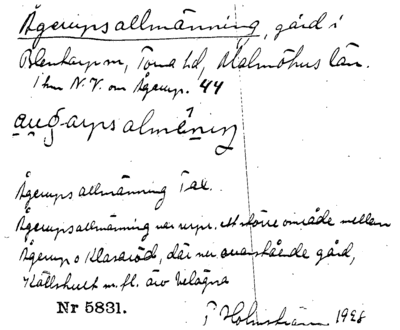 Ågerupsallmänning, gård i
Blentarp sn, Torna hd, Malmöhus län.
1 km N.V. om Ågerup. 44
Ågerupsallmänning Tax.
Ågerupsallmänning var urspr. ett större område mellan
Ågerup o Klasaröd, där nu ovanstående gård,
Källshult m. fl. äro belägna
Nr 5831.
Holmström 1928